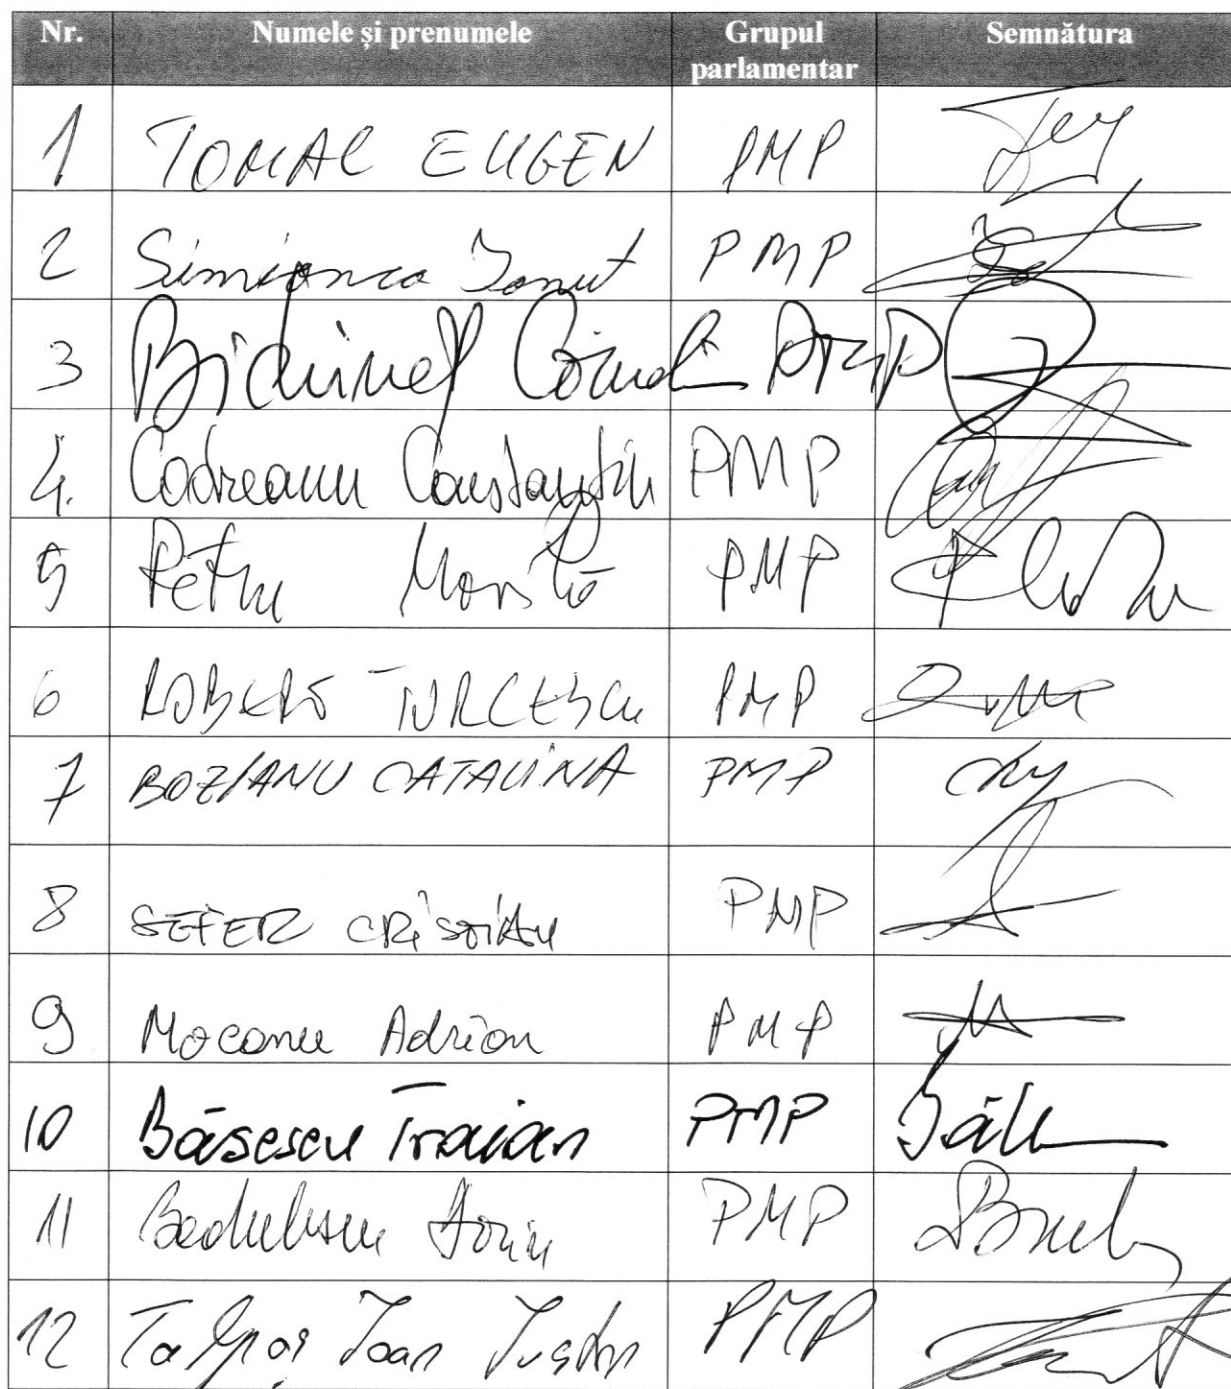 Nr. Numele și prenumele Grupul parlamentar Semnătura
1 TOMAC EUGEN PMP
2 Simionca Ionuț PMP
3 Bichineț Corneliu PMP
4. Codreanu Constantin PMP
5 Petru Movilă PMP
6 ROBERT TURCESCU PMP
7 BOZIANU CATALINA PMP
8 SEFER CRISTIAN PMP
9 Mocanu Adrian PMP
10 Băsescu Traian PMP
11 Badulescu Dorin PMP
12 Talpoș Ioan Iustin PMP